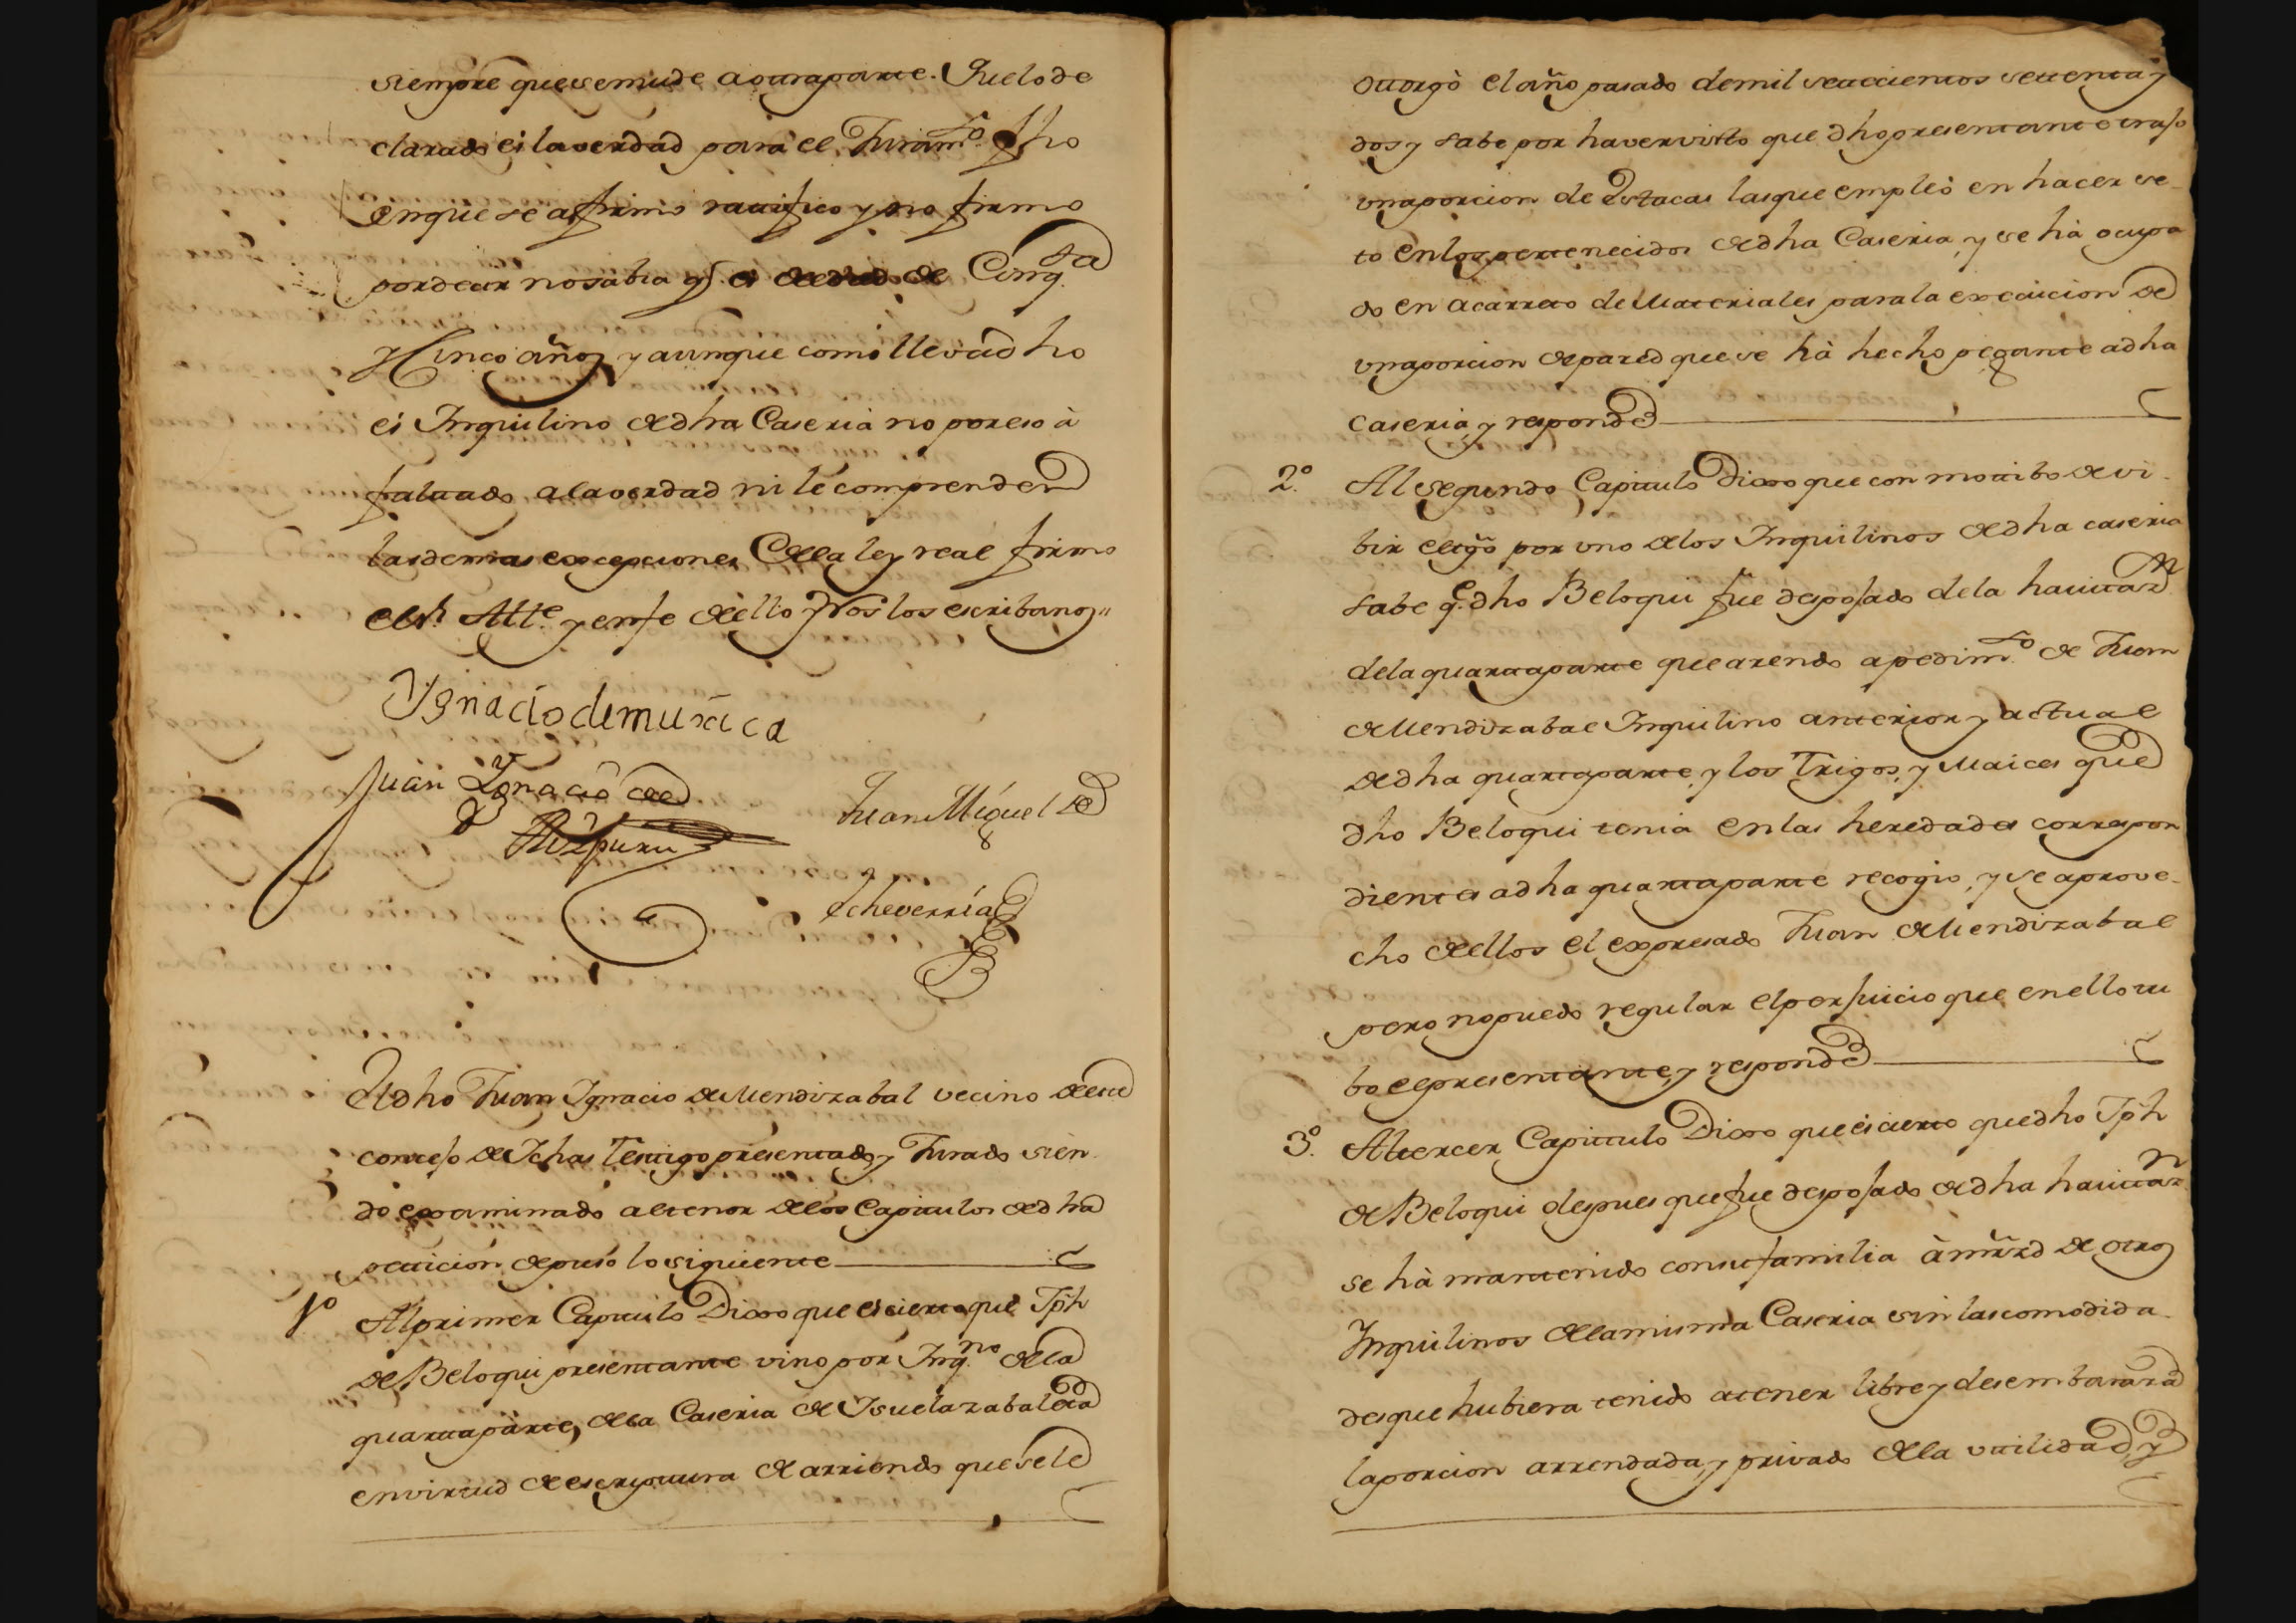 siempre que se mude a otra parte. Que lo de
clarado es la verdad para el Juram.to fho
en que se afirmo ratifico y no firmo
por decir no sabia q.e es de edad de Cinq.ta
y Cinco años y aunque como lleva dho
es Inquilino de dha Caseria no por eso à
faltado a la verdad ni le comprenden
las demas excepciones de la ley real firmo
el s.r Alt.e y en fe de ello Nos los escribanos"
Ygnacio de muxica
Juan Ygnacio de
Aizpuru
Juan Miguel de
Echeverria
El dho Juan Ygnacio de Mendizabal vecino de este
concejo de Ichas Testigo presentado y Jurado sien
do examinado al tenor de los Capitulos de dha
peticion depuso lo siguiente
1.o Al primer Capitulo Dixo que es cierto que Jph
de Beloqui presentante vino por Inq.no de la
quarta parte, de la Caseria de Isuelazabaleta
en virtud de escriptura de arriendo que se le
otorgò el año pasado de mil setecientos settenta y
dos y sabe por haver visto que dho presentante trajo
una porcion de Estacas las que empleò en hacer se-
to en los pertenecidos de dha Caseria, y se hà ocupa
do en acarreto de Materiales para la execucion de
una porcion de pared que se hà hecho pegante a dha
caseria, y responde
2.o Al segundo Capitulo Dixo que con motibo de vi-
bir el tg.o por uno de los Inquilinos de dha caseria
sabe q.e dho Beloqui fue despojado de la havitaz.n
de la quarta parte que arendo a pedim.to de Juan
de Mendizabal Inquilino anterior y actual
de dha quarta parte, y los Trigos, y Maices que
dho Beloqui tenia en las heredades correspon
dientes a dha quarta parte recogio, y se aprove-
cho de ellos el expresado Juan de Mendizabal
pero no puedo regular el perjuicio que en ello tu
bo el presentante, y responde
3.o Al tercer Capitulo Dixo que es cierto que dho Jph
de Beloqui despues que fue despojado de dha havitaz.n
se hà mantenido con su familia à mrzd de otros
Inquilinos de la misma Caseria sin las comodida-
des que hubiera tenido a tener libre y desembarazada
la porcion arrendada, y privado de la utilidad, y